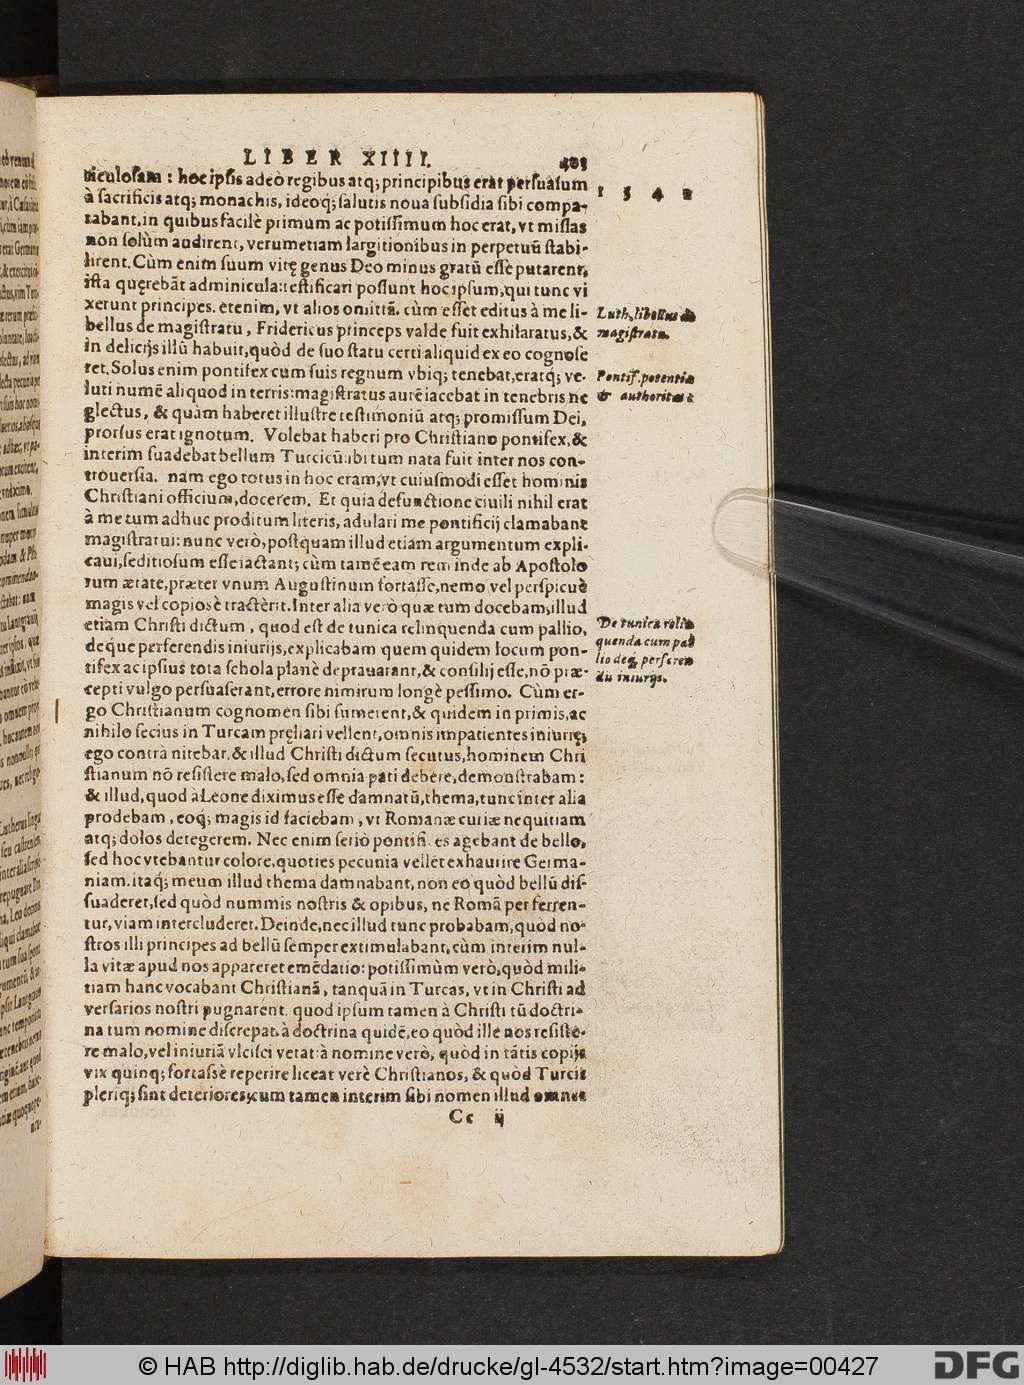 LIBER XIIII. 403
1 5 4 2
niculosam : hoc ipsis adeò regibus atq; principibus erat persuasum
à sacrificis atq; monachis, ideoq; salutis noua subsidia sibi compa-
rabant, in quibus facilè primum ac potissimum hoc erat, vt missas
non solùm audirent, verumetiam largitionibus in perpetuũ stabi-
lirent. Cùm enim suum vitę genus Deo minus gratũ esse putarent,
ista quęrebãt adminicula: testificari possunt hoc ipsum, qui tunc vi
xerunt principes. etenim, vt alios omittã. cùm esset editus à me li-
bellus de magistratu, Fridericus princeps valde fuit exhilaratus, &
in delicijs illũ habuit, quòd de suo statu certi aliquid ex eo cognosc
ret. Solus enim pontifex cum suis regnum vbiq; tenebat, eratq; ve-
luti numẽ aliquod in terris: magistratus autẽ iacebat in tenebris ne
glectus, & quàm haberet illustre testimoniũ atq; promissum Dei,
prorsus erat ignotum. Volebat haberi pro Christiano pontifex, &
interim suadebat bellum Turcicũ: ibi tum nata fuit inter nos con-
trouersia. nam ego totus in hoc eram, vt cuiusmodi esset hominis
Christiani officium, docerem. Et quia de functione ciuili nihil erat
à me tum adhuc proditum literis, adulari me pontificij clamabant
magistratui: nunc verò, postquam illud etiam argumentum expli-
caui, seditiosum esse iactant; cùm tamẽ eam rem inde ab Apostolo
rum ætate, præter vnum Augustinum fortasse, nemo vel perspicuè
magis vel copiosè tractèrit. Inter alia verò quæ tum docebam, illud
etiam Christi dictum, quod est de tunica relinquenda cum pallio,
deque perferendis iniurijs, explicabam quem quidem locum pon-
tifex ac ipsius tota schola planè deprauarant, & consilij esse, nõ præ-
cepti vulgo persuaserant, errore nimirum longè pessimo. Cùm er-
go Christianum cognomen sibi sumerent, & quidem in primis, ac
nihilo secius in Turcam pręliari vellent, omnis impatientes iniurię,
ego contrà nitebar, & illud Christi dictum secutus, hominem Chri
stianum nõ resistere malo, sed omnia pati debere, demonstrabam:
& illud, quod à Leone diximus esse damnatũ, thema, tunc inter alia
prodebam, eoq; magis id faciebam, vt Romanæ curiæ nequitiam
atq; dolos detegerem. Nec enim seriò pontifices agebant de bello,
sed hoc vtebantur colore, quoties pecunia vellẽt exhaurire Germa-
niam. itaq; meum illud thema damnabant, non eo quòd bellũ dis-
suaderet, sed quòd nummis nostris & opibus, ne Romã perferren-
tur, viam intercluderet. Deinde, nec illud tunc probabam, quòd no-
stros illi principes ad bellũ semper extimulabant, cùm interim nul-
la vitæ apud nos appareret emẽdatio: potissimùm verò, quòd mili-
tiam hanc vocabant Christianã, tanquã in Turcas, vt in Christi ad
versarios nostri pugnarent. quod ipsum tamen à Christi tũ doctri-
na tum nomine discrepat. à doctrina quidẽ, eo quòd ille nos resiste-
re malo, vel iniuriã vlcisci vetat: à nomine verò, quòd in tãtis copijs
vix quinq; fortassè reperire liceat verè Christianos, & quòd Turcis
pleriq; sint deteriores, cum tamen interim sibi nomen illud omnes
Cc ij
Luth. libellus de
magistratu.
Pontif. potentia
& authoritas
De tunica relin
quenda cum pal
lio deq; perferen
du iniurijs.
© HAB http://diglib.hab.de/drucke/gl-4532/start.htm?image=00427
DFG